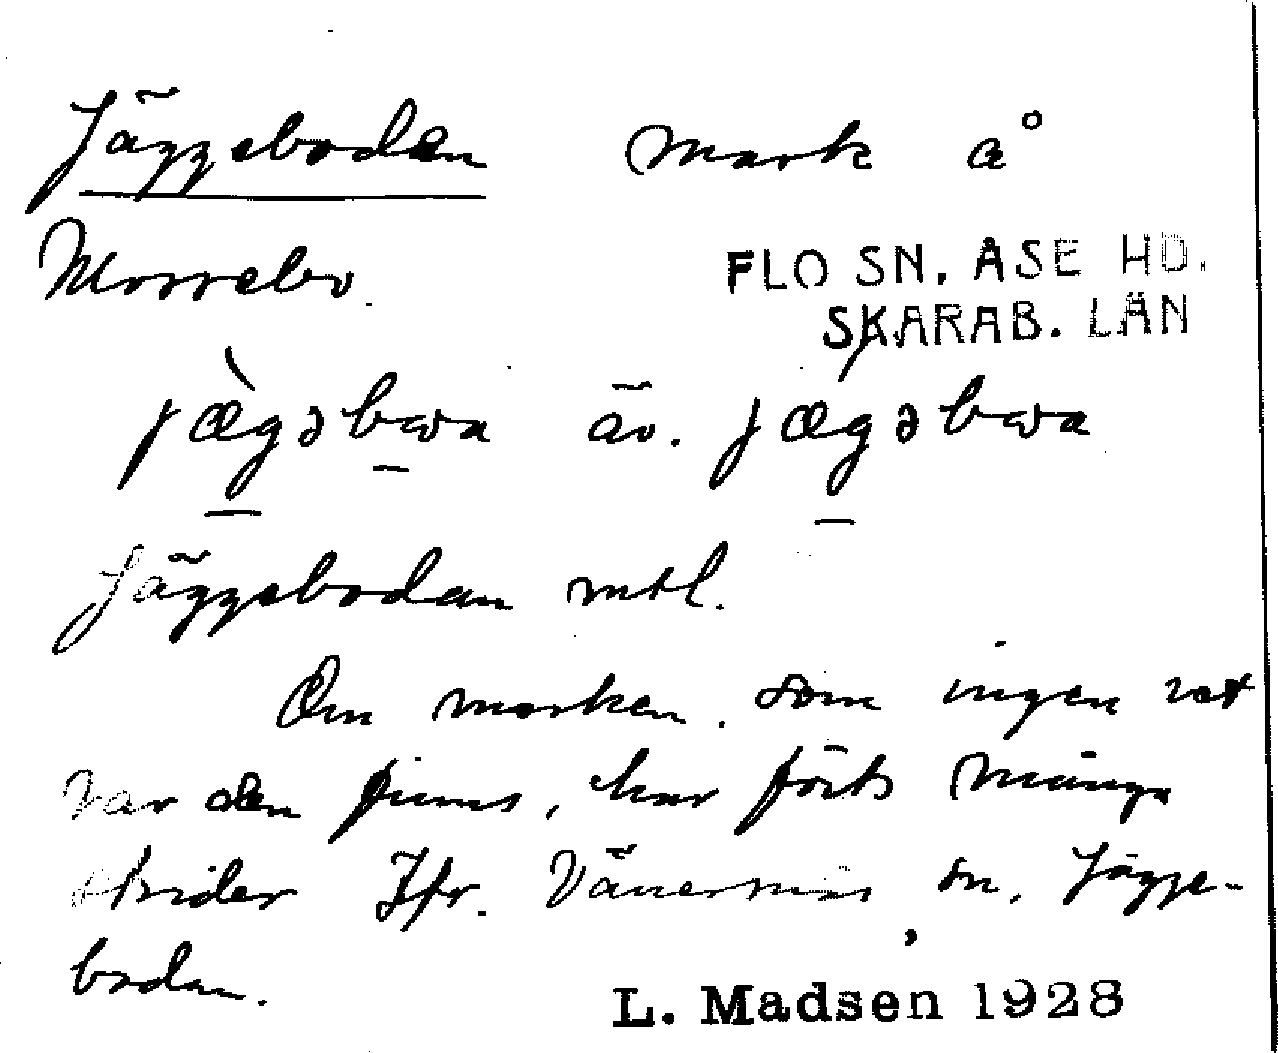 Jäggeboden mark å
Mossebo.
FLO SN. ÅSE HD.
SKARAB. LÄN
jæ̀gəbωa äv. jǽgəbωa
Jäggebodan mtl.
Om marken, som ingen vet
var den finns, har förts många
strider Jfr. Vänersnäs sn, Jägge-
bodan.
L. Madsen 1928